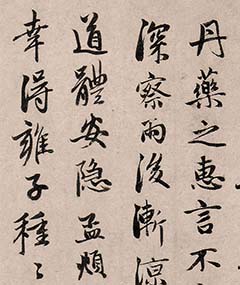 丹藥之惠言不
深察雨後漸涼
道體安隐孟頫
幸得雍子種〻